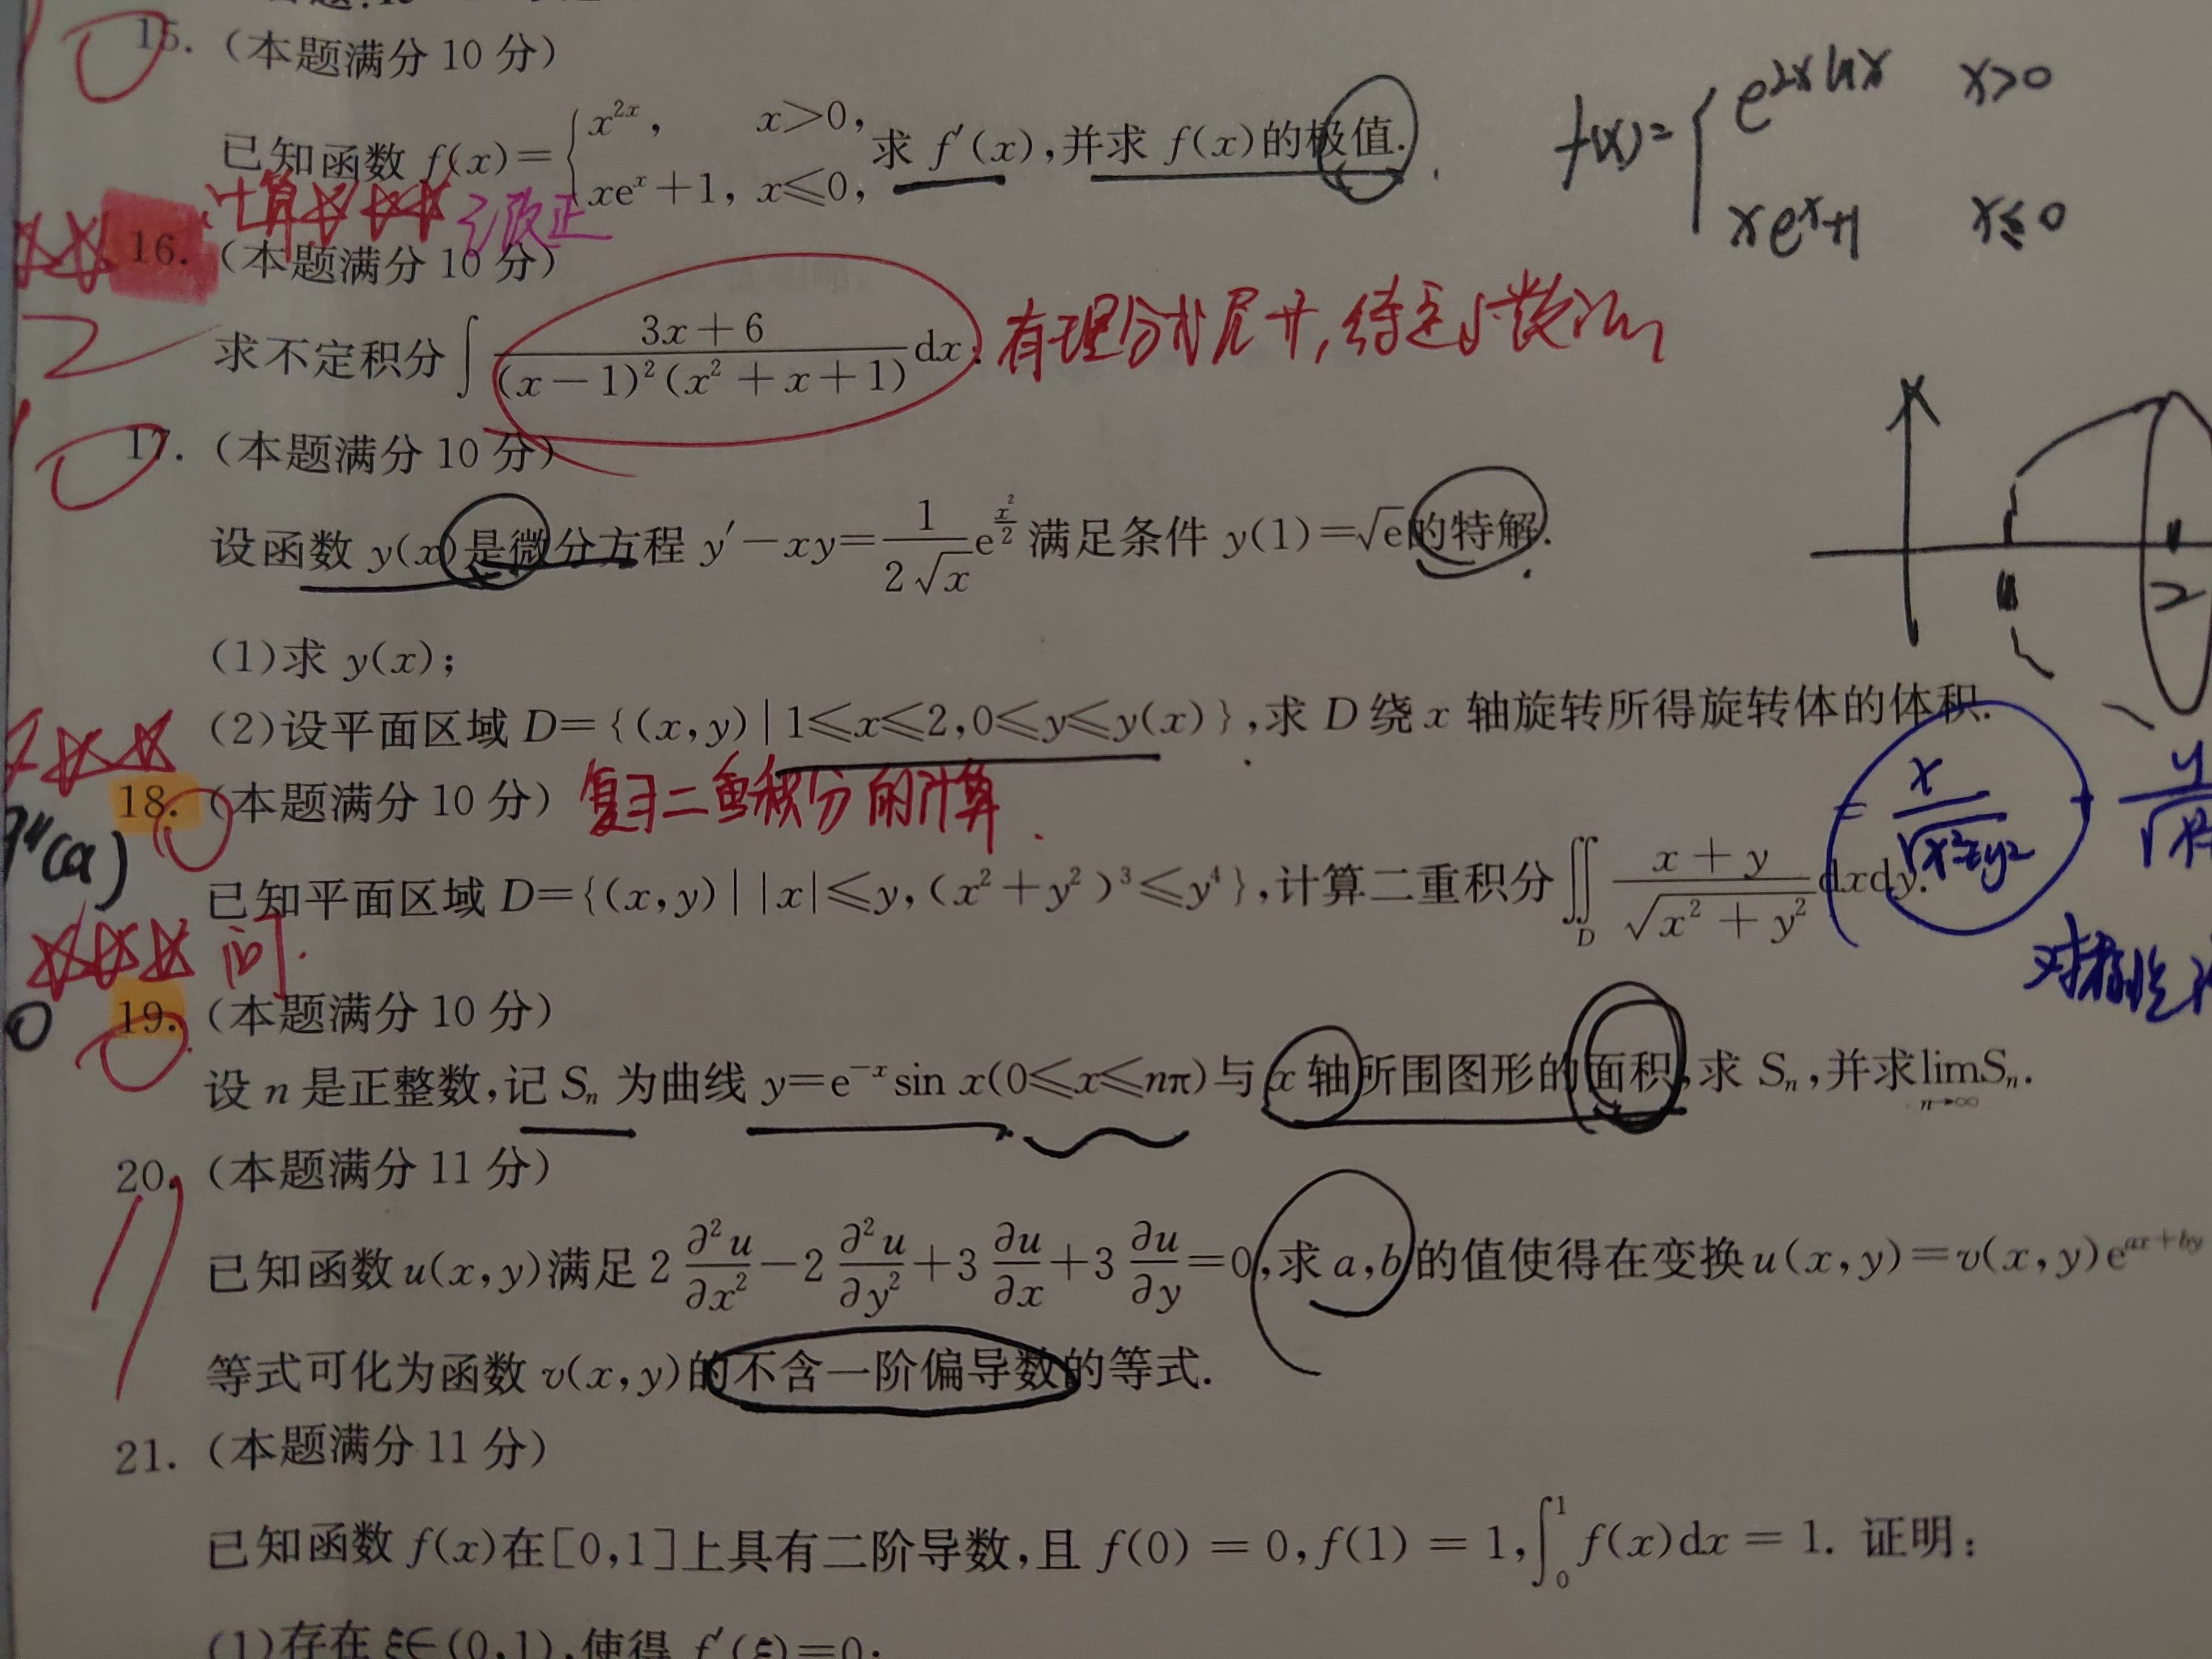 15. (本题满分 10 分)
已知函数 f(x)={x^{2x}, x>0, xe^x+1, x≤0, 求 f′(x),并求 f(x)的极值.
f(x)={e^{2x ln x} x>0
xe^x+1 x≤0
计算 改正
16. (本题满分 10 分)
求不定积分∫(3x+6)/((x−1)²(x²+x+1))dx.
17. (本题满分 10 分)
设函数 y(x)是微分方程 y′−xy=1/(2√x) e^{x²/2} 满足条件 y(1)=√e的特解.
(1)求 y(x);
2
(2)设平面区域 D={(x,y)|1≤x≤2,0≤y≤y(x)},求 D 绕 x 轴旋转所得旋转体的体积.
18. (本题满分 10 分) 复习二重积分的计算.
= x/√(x²+y²) +
已知平面区域 D={(x,y)||x|≤y,(x²+y²)³≤y⁴},计算二重积分∬_D (x+y)/√(x²+y²) dxdy.
问.
对称性
19. (本题满分 10 分)
设 n 是正整数,记 Sₙ 为曲线 y=e^{−x}sin x(0≤x≤nπ)与 x 轴所围图形的面积,求 Sₙ,并求lim_{n→∞}Sₙ.
20. (本题满分 11 分)
已知函数u(x,y)满足 2 ∂²u/∂x²−2 ∂²u/∂y²+3 ∂u/∂x+3 ∂u/∂y=0,求 a,b 的值使得在变换u(x,y)=v(x,y)e^{ax+by}
等式可化为函数 v(x,y)的不含一阶偏导数的等式.
21. (本题满分 11 分)
已知函数 f(x)在[0,1]上具有二阶导数,且 f(0)=0,f(1)=1,∫₀¹f(x)dx=1. 证明:
(1)存在 ξ∈(0,1),使得 f′(ξ)=0;